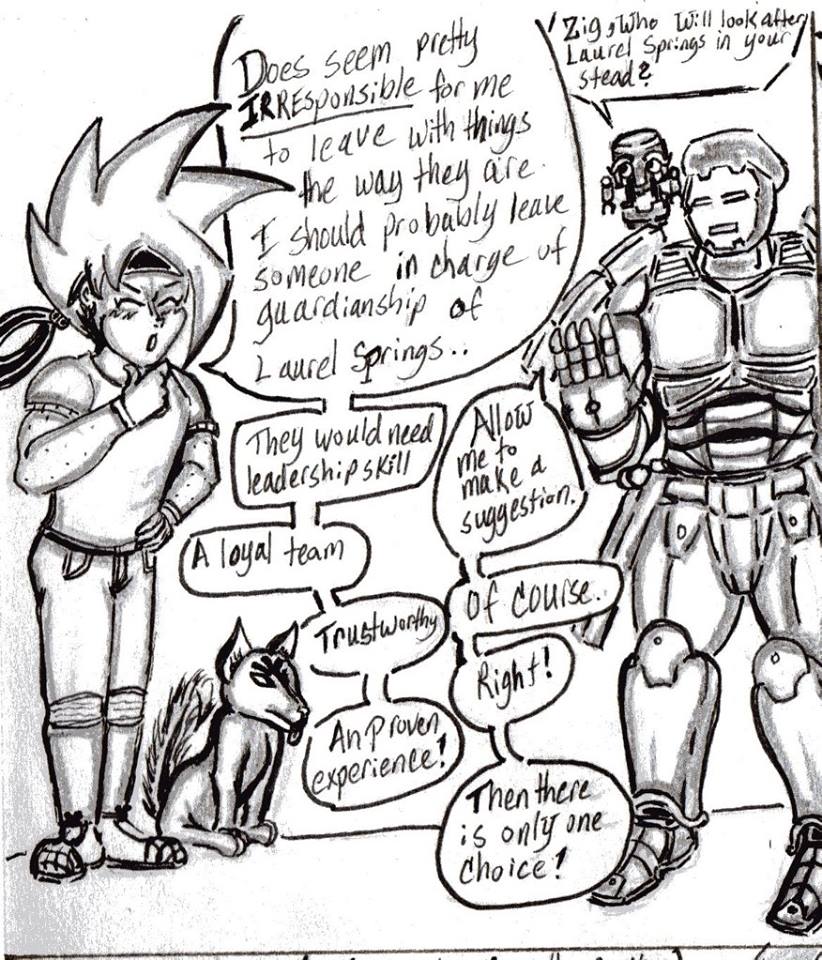 Zig, Who Will look after
Laurel Springs in your
stead?
Does seem pretty
IRRESponsible for me
to leave with things
the way they are.
I should probably leave
someone in charge of
guardianship of
Laurel Springs..
They would need
leadership skill
Allow
me to
make a
suggestion.
A loyal team
Of course.
Trustworthy
Right!
An proven
experience!
Then there
is only one
choice!